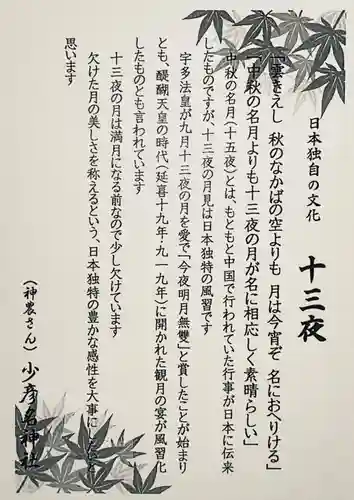 十三夜
日本独自の文化
「雲きえし 秋のなかばの空よりも 月は今宵ぞ 名におへりける」
「中秋の名月よりも十三夜の月が名に相応しく素晴らしい」
中秋の名月(十五夜)とは、もともと中国で行われていた行事が日本に伝来
したものですが、十三夜の月見は日本独特の風習です
宇多法皇が九月十三夜の月を愛で「今夜明月無雙」と賞したことが始まり
とも、醍醐天皇の時代(延喜十九年・九一九年)に開かれた観月の宴が風習化
したものとも言われています
十三夜の月は満月になる前なので少し欠けています
欠けた月の美しさを称えるという、日本独特の豊かな感性を大事に
思います
(神農さん) 少彦名神社